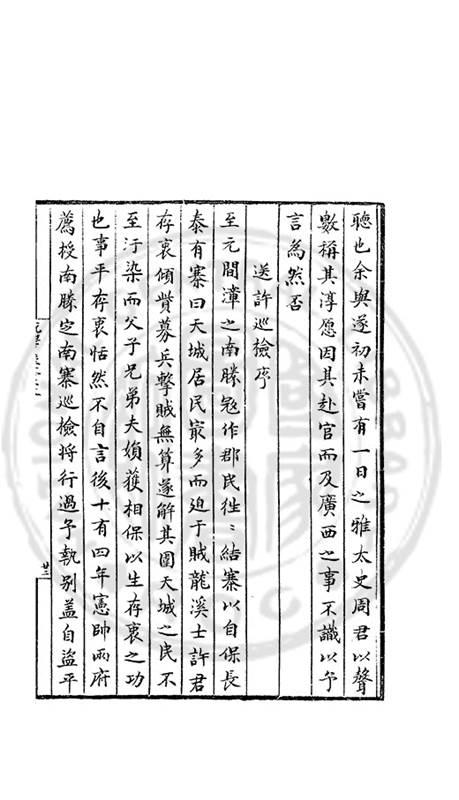 聰也余與遂初未嘗有一日之雅太史周君以聲
數稱其淳愿因其赴官而及廣西之事不識以予
言為然否
送許巡檢序
至元間漳之南勝冦作郡民徃〻結寨以自保長
泰有寨曰天城居民㝡多而迫于賊龍溪士許君
存衷傾貲募兵擊賊無算遂解其圍天城之民不
至汙染而父子兄弟夫婦獲相保以生存衷之功
也事平存衷恬然不自言後十有四年憲帥兩府
薦授南勝定南寨巡檢將行過予執別盖自盜平
廿三